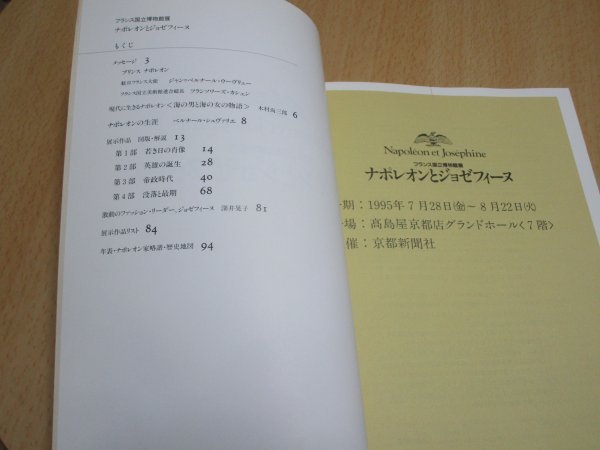 フランス国立博物館展
ナポレオンとジョゼフィーヌ
もくじ
メッセージ 3
プリンス ナポレオン
駐日フランス大使 ジャン=ベルナール・ウーヴリュー
フランス国立美術館連合総長 フランソワーズ・カシャン
現代に生きるナポレオン〈海の男と海の女の物語〉 木村尚三郎 6
ナポレオンの生涯 ベルナール・シュヴァリエ 8
展示作品 図版・解説 13
第1部 若き日の肖像 14
第2部 英雄の誕生 28
第3部 帝政時代 40
第4部 没落と最期 68
激動のファッション・リーダー、ジョゼフィーヌ 深井晃子 81
展示作品リスト 84
年表・ナポレオン家略譜・歴史地図 94
Napoléon et Joséphine
フランス国立博物館展
ナポレオンとジョゼフィーヌ
期：1995年7月28日(金)～8月22日(火)
場：髙島屋京都店グランドホール〈7階〉
催：京都新聞社